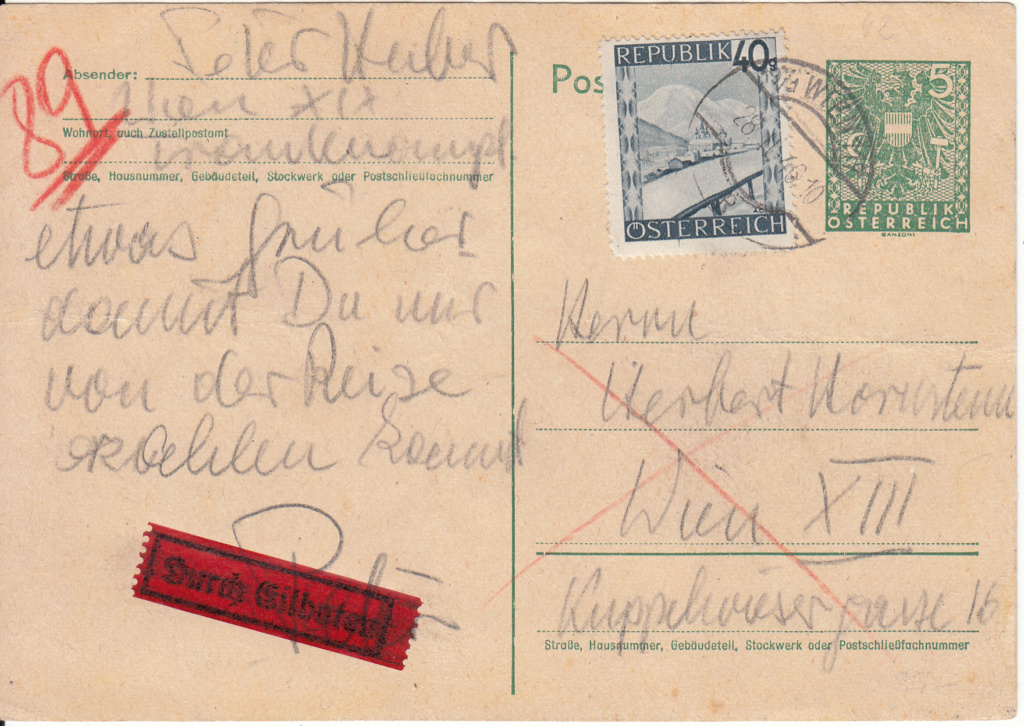 89
Absender: Peter
Wien XIX
Wohnort, auch Zustellpostamt
Straße, Hausnummer, Gebäudeteil, Stockwerk oder Postschließfachnummer
etwas früher
damit Du mir
von der Reise
erzählen kannst
Peter
Durch Eilboten
Pos
REPUBLIK 40g
ÖSTERREICH
WIEN
5
REPUBLIK
ÖSTERREICH
Herrn
Herbert
Wien XIII
Kuppelwiesergasse 16
Straße, Hausnummer, Gebäudeteil, Stockwerk oder Postschließfachnummer